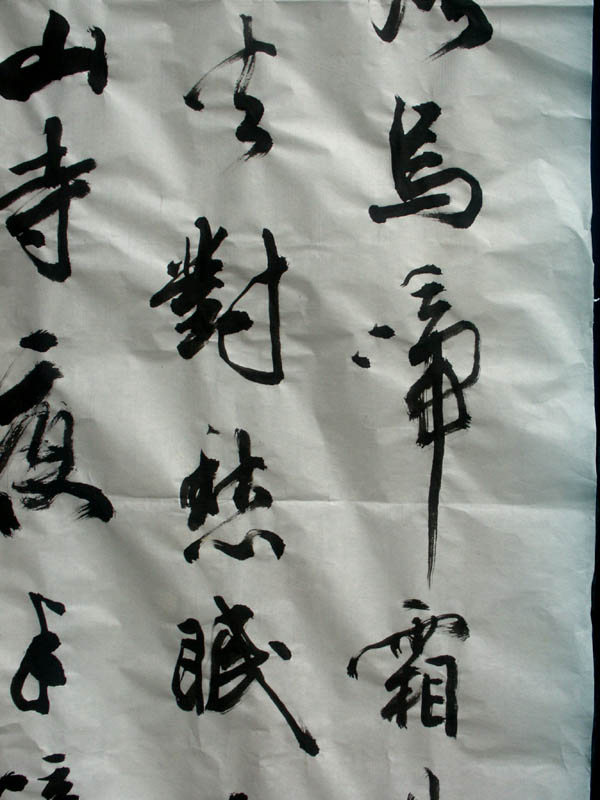 烏啼霜
火對愁眠
山寺夜半